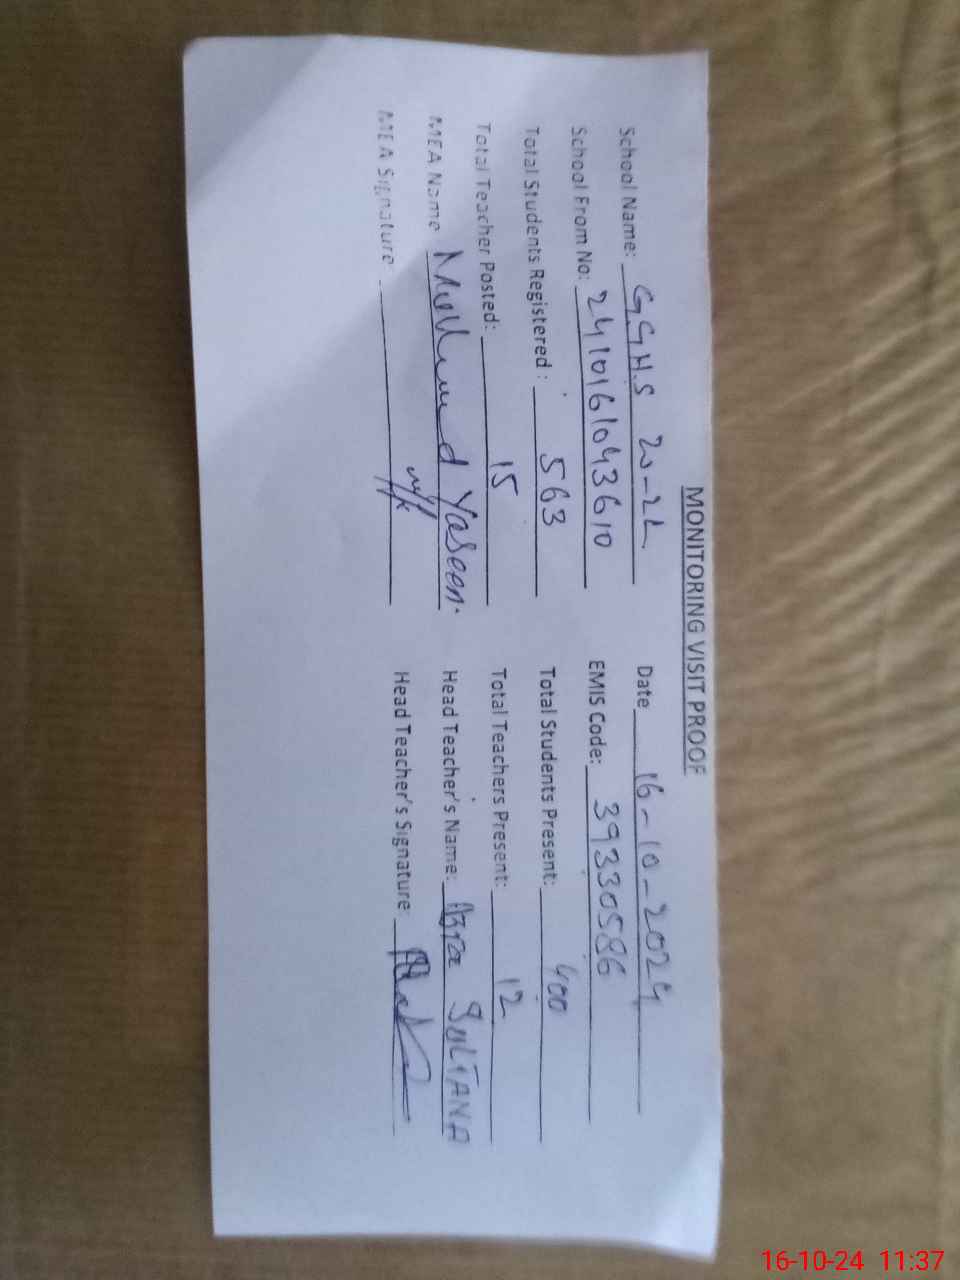 MONITORING VISIT PROOF
School Name: GGHS 20-2L Date 16-10-2024
School From No: 2410161043610 EMIS Code: 39330586
Total Students Registered : 563 Total Students Present: 400
Total Teacher Posted: 15 Total Teachers Present: 12
MEA Name Yaseen. Head Teacher's Name: SULTANA
MEA Signature Head Teacher's Signature:
16-10-24 11:37